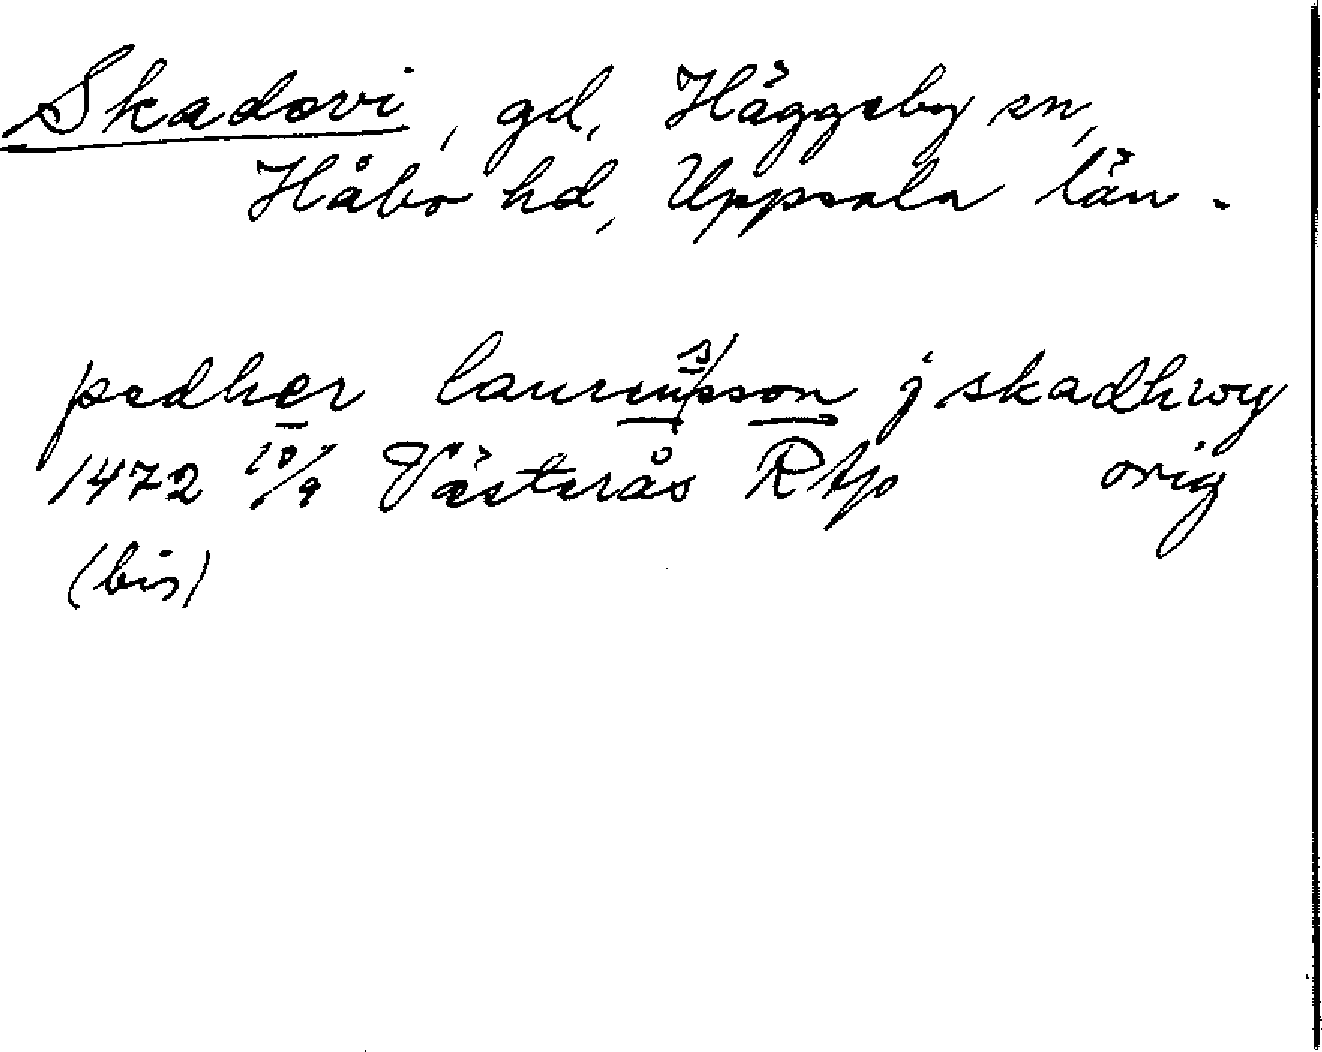 Skadovi, gd, Häggeby sn,
Håbo hd, Uppsala län.
pedher laurenssson j skadhwy
1472 10/9 Västerås Rtp orig
(bis)